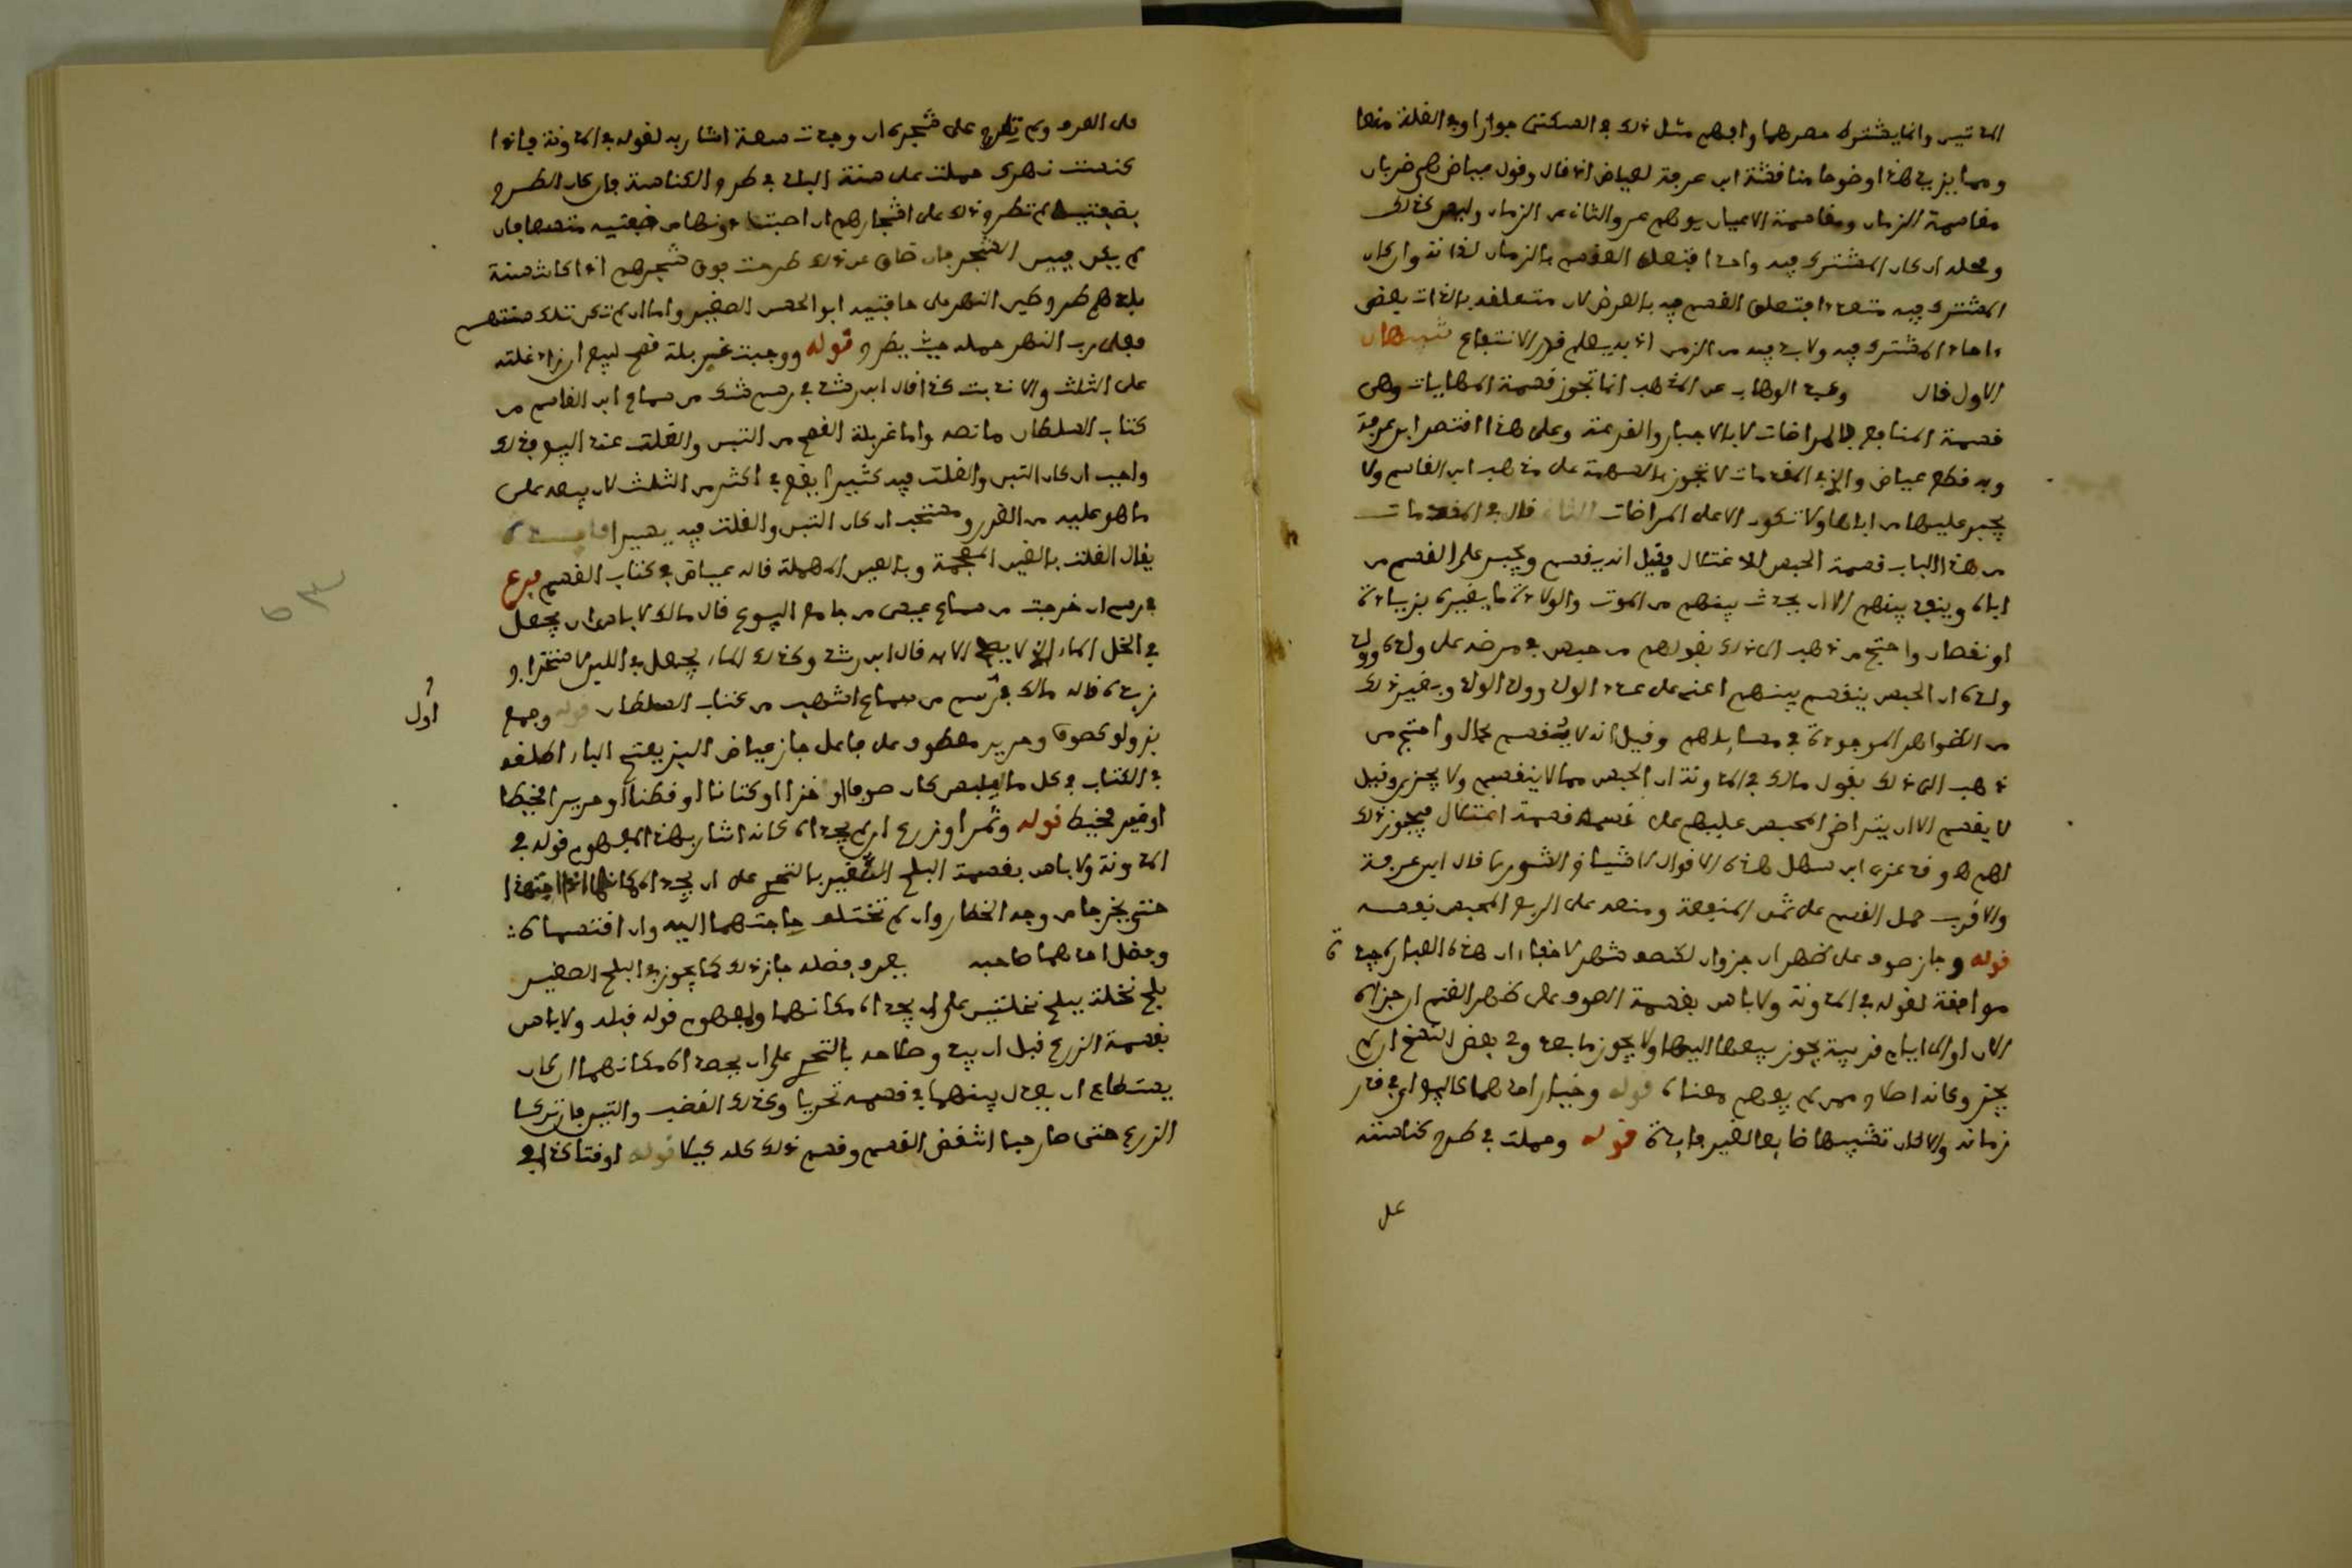 المدتين وإنما يشترك معرفهما وابهم مثل ذلك في السكنى جوازا وفي الغلة منعا
ومما يزيد هذا وضوحا مناقشة ابن عرفة لعياض إذ قال وقول عياض هي ضربان
مقاسمة الزمان ومقاسمة الأعيان يوهم عرو الثاني عن الزمان وليس كذلك
ومحله ان كان المشترك فيه واحدا فتعلق القسم بالزمان لذاته وان كان
المشترك فيه متعددا فتعلق القسم فيه بالعرض لان متعلقه بالذات بعض
احاد المشترك فيه ولا بد فيه من الزمن اذ به يعلم قدر الانتفاع تنبيهان
الاول قال وعبد الوهاب عن المذهب انما تجوز قسمة المهايات وهي
قسمة المنافع بالمراضات لا بالاجبار والقرعة وعلى هذا اقتصر ابن عرفة
وبه قطع عياض والذي في المقدمات لا تجوز بالسهمة على مذهب ابن القاسم ولا
يجبر عليها من اباها ولا تكون الا على المراضات الثاني قال في المقدمات
من هذا الباب قسمة الحبس للاغتلال فقيل انه يقسم ويجبر على القسم من
اباه وينفذ بينهم الا ان يحدث بينهم من الموت والولادة ما يغيره بزيادة
او نقصان واحتج من ذهب الى ذلك بقولهم من حبس في مرضه على ولده وولد
ولده ان الحبس ينقسم بينهم اعني على عدد الولد وولد الولد وبغير ذلك
من الظواهر الموجودة في مسايلهم وقيل انه لا يقسم بحال واحتج من
ذهب الى ذلك بقول مالك في المدونة ان الحبس مما لا ينقسم ولا يجزى وقيل
لا يقسم الا ان يتراضى المحبس عليهم على قسمه قسمة اغتلال فيجوز ذلك
لهم هو وقد عزى ابن سهل هذه الاقوال لاشياخ الشورى قال ابن عرفة
والاقرب حمل القسم على ثمن المنفعة ومنعه على الربع المحبس نفسه
قوله وجاز صوف على ظهر ان جز وان لكنصف شهر لا خفاء ان هذه العبارة جيدة
موافقة لقوله في المدونة ولا باس بقسمة الصوف على ظهر الغنم ان جزاه
الان او الى ايام قريبة يجوز بيعها اليها ولا يجوز ما بعد وفي بعض النسخ ان لم
يجز وكانه اصلاح ممن لم يفهم معناه قوله وخيار احدهما كالبيع اي في قدر
زمانه والا كان تشبيها ضايعا لغير فايدة قوله وحملت في طرح كناسته
على
على العرف ولم تطرح على شجره ان وجدت سعة اشار به لقوله في المدونة فاذا
كنست نهرك حملت على سنة البلد في طرح الكناسة فان كان الطرح
بضفتيه لم تطرح ذلك على اشجارهم ان اصبت دونها من ضفتيه متسعا فان
لم يكن فبين الشجر فان ضاق عن ذلك طرحت فوق شجرهم اذا كانت سنة
بلدهم طرح طين النهر على حافتيه ابو الحسن الصغير واما ان لم تكن تلك سنتهم
فعلى رب النهر حمله حيث يطرح قوله ووجبت غربلة قمح لبيع ان زاد غلثه
على الثلث والا ندبت كذا قال ابن رشد في رسم شك من سماع ابن القاسم من
كتاب السلطان ما نصه واما غربلة القمح من التبن والغلث عند البيع فذلك
واجب ان كان التبن والغلث فيه كثيرا يقع في اكثر من الثلث لان بيعه على
ما هو عليه من الغرر ومستحب ان كان التبن والغلث فيه يسيرا فايدة
يقال الغلث بالغين المعجمة وبالعين المهملة قاله عياض في كتاب القسم فرع
في رسم ان خرجت من سماع عيسى من جامع البيوع قال مالك لا باس ان يجعل
في الخل الماء الذي لا يصلح الا به قال ابن رشد وكذلك الماء يجعل في اللبن لاستخراج
زبده قاله مالك في رسم من سماع اشهب من كتاب السلطان قوله وجمع
بز ولو كصوف وحرير معطوف على فاعل جاز عياض البز بفتح الباء اطلقه
اول
في الكتاب في كل ما يلبس كان صوفا او خزا او كتانا او قطنا او حريرا مخيطا
او غير مخيط قوله وثمر او زرع ان لم يجذاه كانه اشار بهذا المفهوم قوله في
المدونة ولا باس بقسمة البلح الصغير بالتحري على ان يجذاه مكانهما اذا اجتهدا
حتى يخرجا من وجه الخطار وان لم تختلف حاجتهما اليه وان اقتسماه
وفضل احدهما صاحبه يعرف فضله جاز ذلك كما يجوز في البلح الصغير
بلح نخلة ببلح نخلتين على ان يجذاه مكانهما ولمفهوم قوله قبله ولا باس
بقسمة الزرع قبل ان يبدو صلاحه بالتحري على ان يحصداه مكانهما ان كان
يستطاع ان يعدل بينهما في قسمه تحريا وكذلك القضب والتين فان تركا
الزرع حتى صار حبا انتقض القسم وقسم ذلك كله كيلا قوله او قثا كذا في